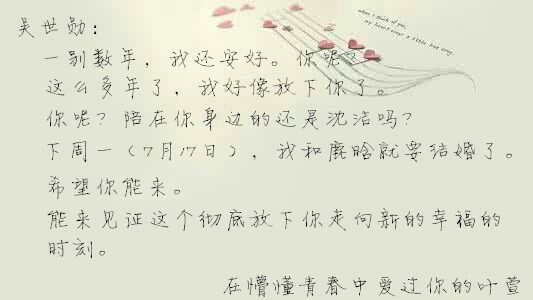 when i think of you,
my heart sings a little love song.
吴世勋：
一别数年，我还安好。你呢？
这么多年了，我好像放下你了。
你呢？陪在你身边的还是沈洁吗？
下周一（7月17日），我和鹿晗就要结婚了。
希望你能来。
能来见证这个彻底放下你走向新的幸福的
时刻。
在懵懂青春中爱过你的叶萱